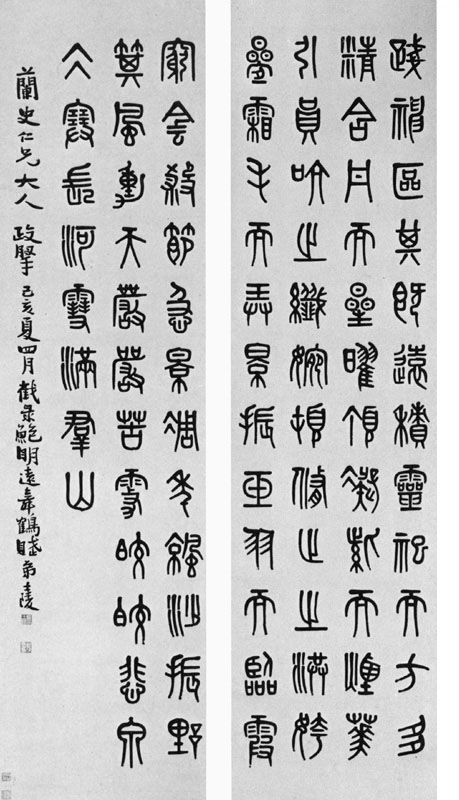 踐神區其既遠積靈祀而方多
精含丹而星曜頂凝紫而煙華
引員吭之纖婉頓脩止之洪姱
疊霜毛而弄景振玉羽而臨霞
窮陰殺節急景凋年涼沙振野
箕風動天嚴嚴苦霧皎皎悲泉
冰塞長河雪滿羣山
蘭史仁兄大人 政 己亥夏四月截录鮑明遠舞鶴賦 弟陵